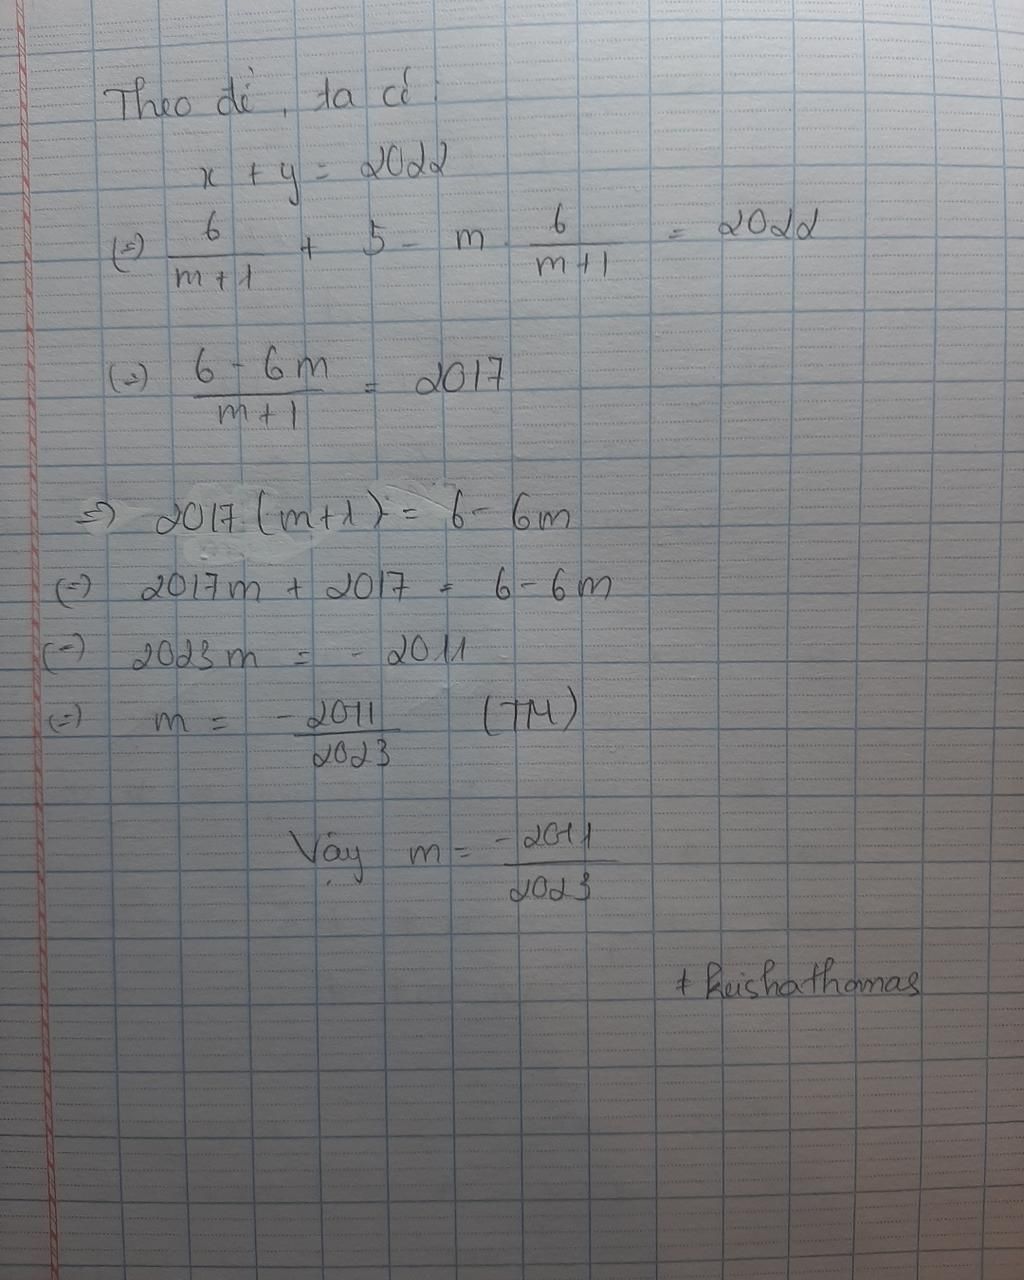 Theo đề, ta có:
x + y = 2022
(=) 6/(m+1) + 5 - m . 6/(m+1) = 2022
(=) (6 - 6m)/(m+1) = 2017
=) 2017.(m+1) = 6 - 6m
(=) 2017m + 2017 = 6 - 6m
(=) 2023m = - 2011
(=) m = -2011/2023 (TM)
Vậy m = -2011/2023